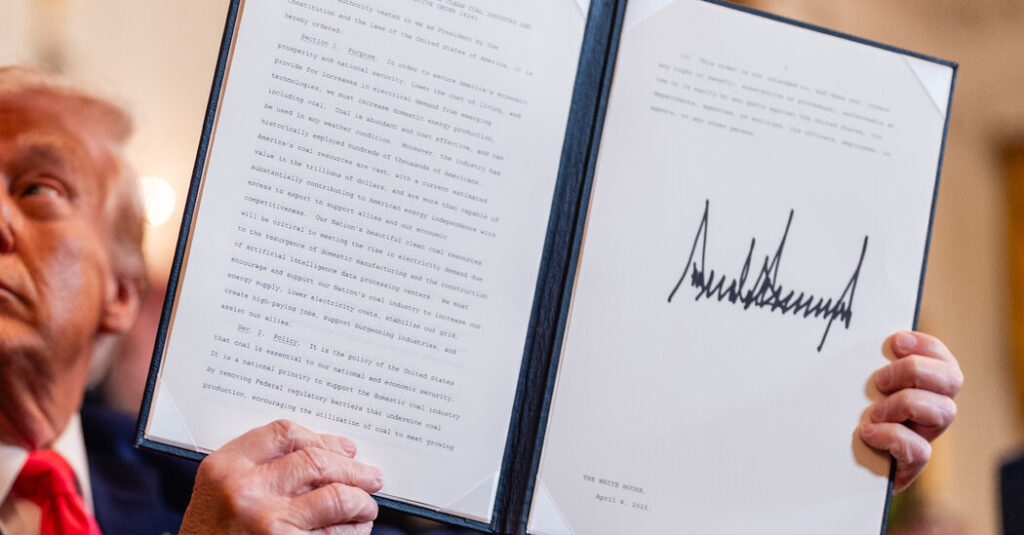 CLEAN COAL INDUSTRY AND
ORDER 14241
authority vested in me as President by the
Constitution and the laws of the United States of America, it is
hereby ordered:
Section 1. Purpose. In order to secure America's economic
prosperity and national security, lower the cost of living, and
provide for increases in electrical demand from emerging
technologies, we must increase domestic energy production,
including coal. Coal is abundant and cost effective, and can
be used in any weather condition. Moreover, the industry has
historically employed hundreds of thousands of Americans.
America's coal resources are vast, with a current estimated
value in the trillions of dollars, and are more than capable of
substantially contributing to American energy independence with
excess to export to support allies and our economic
competitiveness. Our Nation's beautiful clean coal resources
will be critical to meeting the rise in electricity demand due
to the resurgence of domestic manufacturing and the construction
of artificial intelligence data processing centers. We must
encourage and support our Nation's coal industry to increase our
energy supply, lower electricity costs, stabilize our grid,
create high-paying jobs, support burgeoning industries, and
assist our allies.
Sec. 2. Policy. It is the policy of the United States
that coal is essential to our national and economic security.
It is a national priority to support the domestic coal industry
by removing Federal regulatory barriers that undermine coal
production, encouraging the utilization of coal to meet growing
This order is not intended to, and does not, create
any right or benefit, substantive or procedural, enforceable at
law or in equity by any party against the United States, its
departments, agencies, or entities, its officers, employees, or
agents, or any other person.
THE WHITE HOUSE,
April 8, 2025.